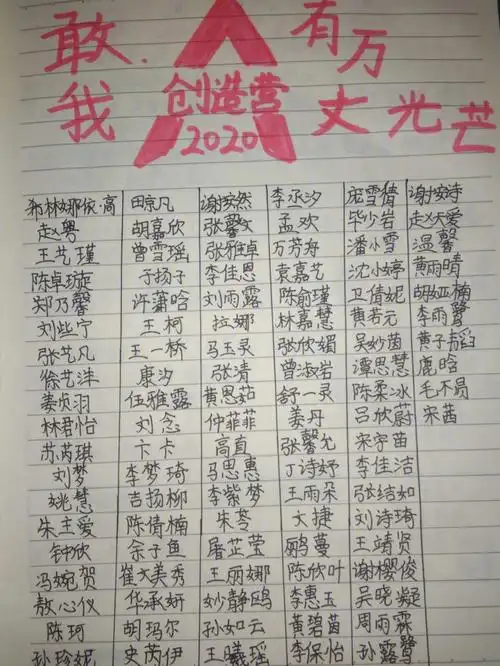 敢 有万
我 创造营 丈光芒
2020
希林娜依·高 田京凡 谢安然 李丞汐 庞雪倩 谢安诗
赵粤 胡嘉欣 张馨文 孟欢 毕少岩 赵天爱
王艺瑾 曾雪瑶 张雅卓 万芳舟 潘小雪 温馨
陈卓璇 于扬子 李佳恩 袁嘉艺 沈小婷 黄雨晴
郑乃馨 许潇晗 刘雨露 陈俞瑾 卫倩妮 胡娅楠
刘些宁 王柯 拉娜 林嘉慧 黄若元 李雨鹭
张艺凡 王一桥 马玉灵 张欣媚 吴妙茵 黄子韬
徐艺洋 康汐 张清 曾淑岩 谭思慧 鹿晗
姜贞羽 伍雅露 黄思茹 舒一灵 陈柔冰 毛不易
林君怡 刘念 仲菲菲 姜丹 吕欣蔚 宋茜
苏芮琪 卞卡 高直 张馨允 宋宇苗
刘梦 李梦琦 马思惠 丁诗妤 李佳洁
姚慧 吉扬柳 李紫梦 王雨朵 张结如
朱主爱 陈倩楠 朱苓 文捷 刘诗琦
钟欣 余子鱼 屠芷莹 鹂蔓 王靖贤
冯婉贺 崔文美秀 王丽娜 陈欣叶 谢樱俊
敖心仪 华承妍 妙静鸥 李惠玉 吴晓凝
陈珂 胡玛尔 孙如云 黄碧茵 周雨霖
孙珍妮 史芮伊 王曦瑶 李保怡 孙露鹭